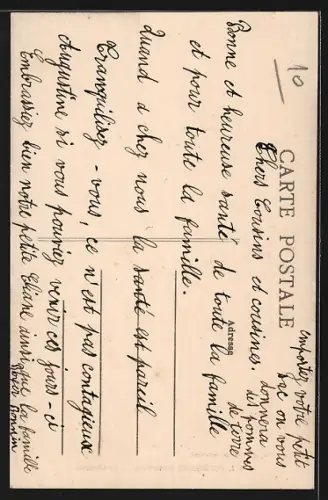 10
CARTE POSTALE
Chers Cousins et cousines.
Bonne et heureuse santé de toute la famille
et pour toute la famille.
Quand a chez nous la santé est pareil
Tranquilisez-vous, ce n'est pas contagieux
Augustine si vous pouviez venir ces jours-ci
Embrassez bien notre petite Eliane ainsi que la famille
Adresse
emportez votre petit
sac on vous
donnera
des pommes
de terre